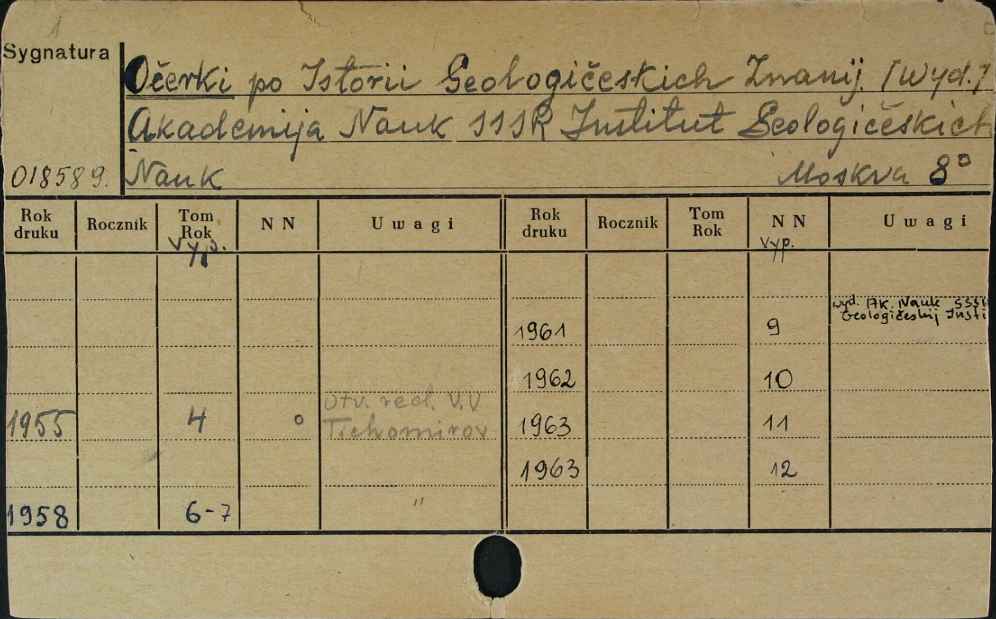 1
Sygnatura
Očerki po Istorii Geologičeskich Znanij. [Wyd.]
Akademija Nauk SSSR Institut Geologičeskich
018589. Nauk Moskva 8°
Rok druku Rocznik Tom Rok NN Uwagi Rok druku Rocznik Tom Rok NN Uwagi
Vyp. Vyp.
wyd. AK. Nauk SSSR
Geologičeskij Insti
1961 9
1962 10
Otv. red. V.V
1955 4 ° Tichomirov 1963 11
1963 12
1958 6-7 "